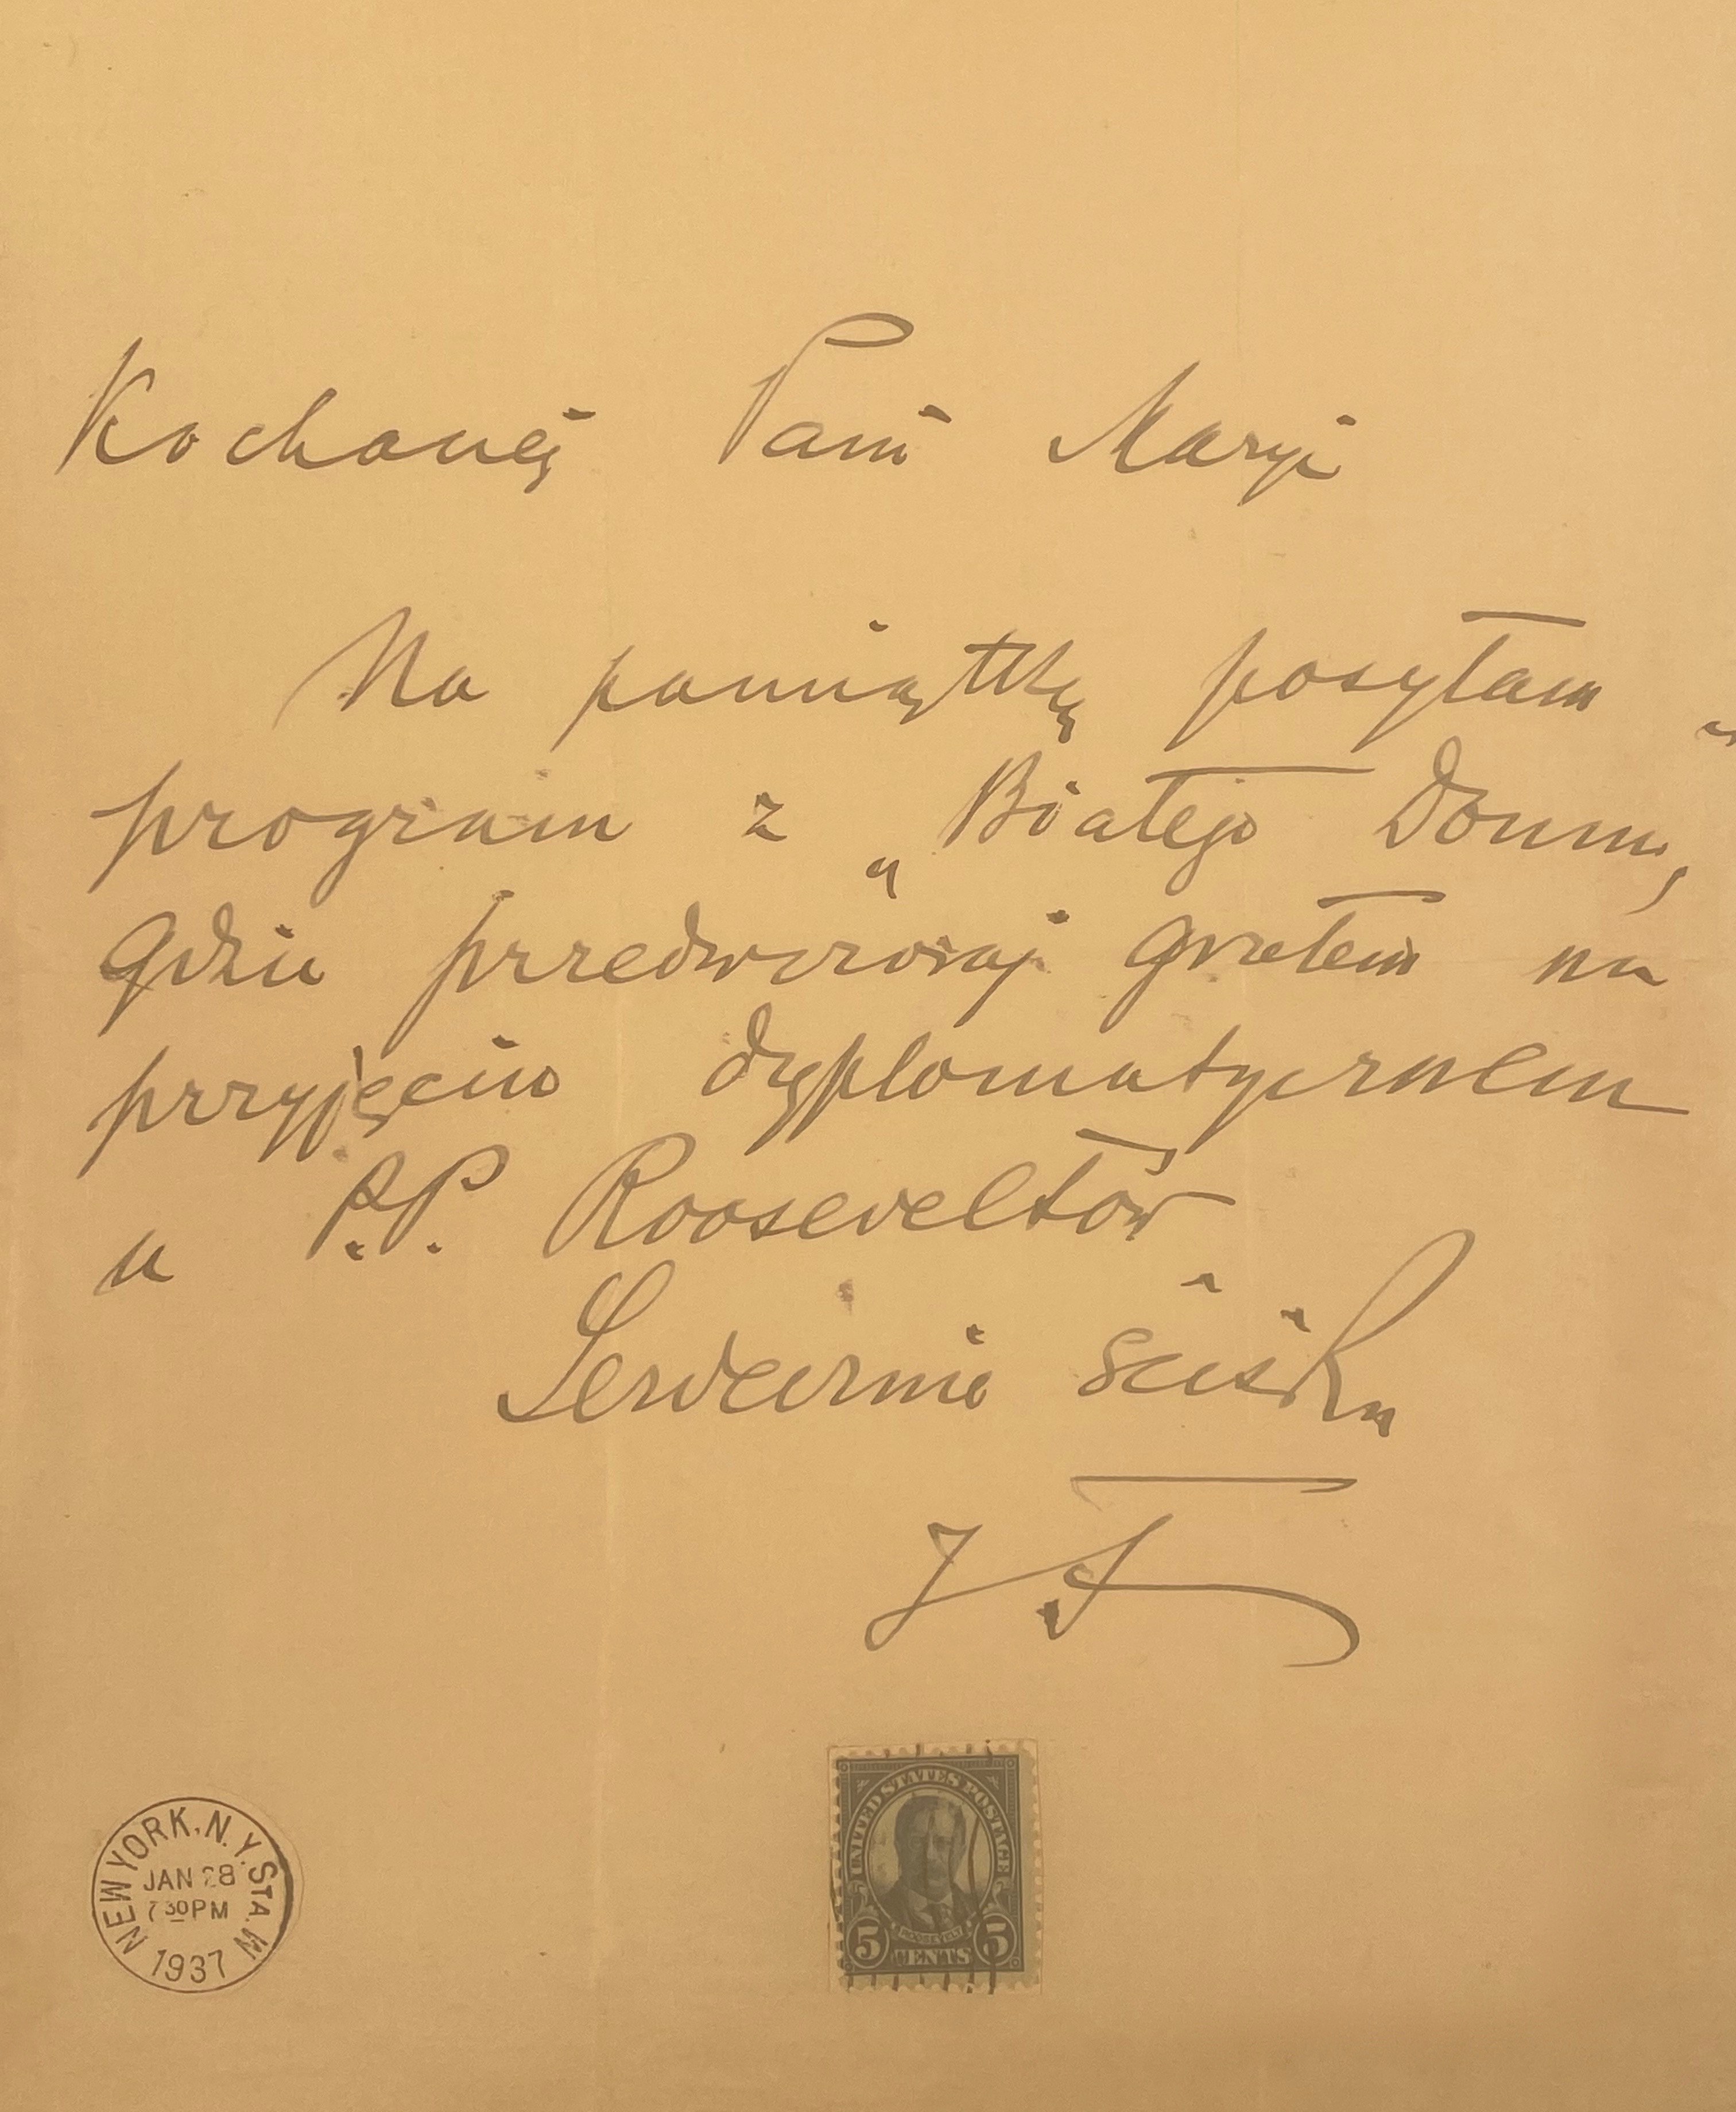 Kochanéj Pani Maryi
Na pamiątkę posyłam
program z „Białego Domu"
gdzie przedwczoraj grałem na
przyjęciu dyplomatycznem
u P.P. Rooseveltów
Serdecznie ściskam
NEW YORK, N.Y. STA. W
JAN 28
7 30 PM
1937
UNITED STATES POSTAGE
ROOSEVELT
5 CENTS 5